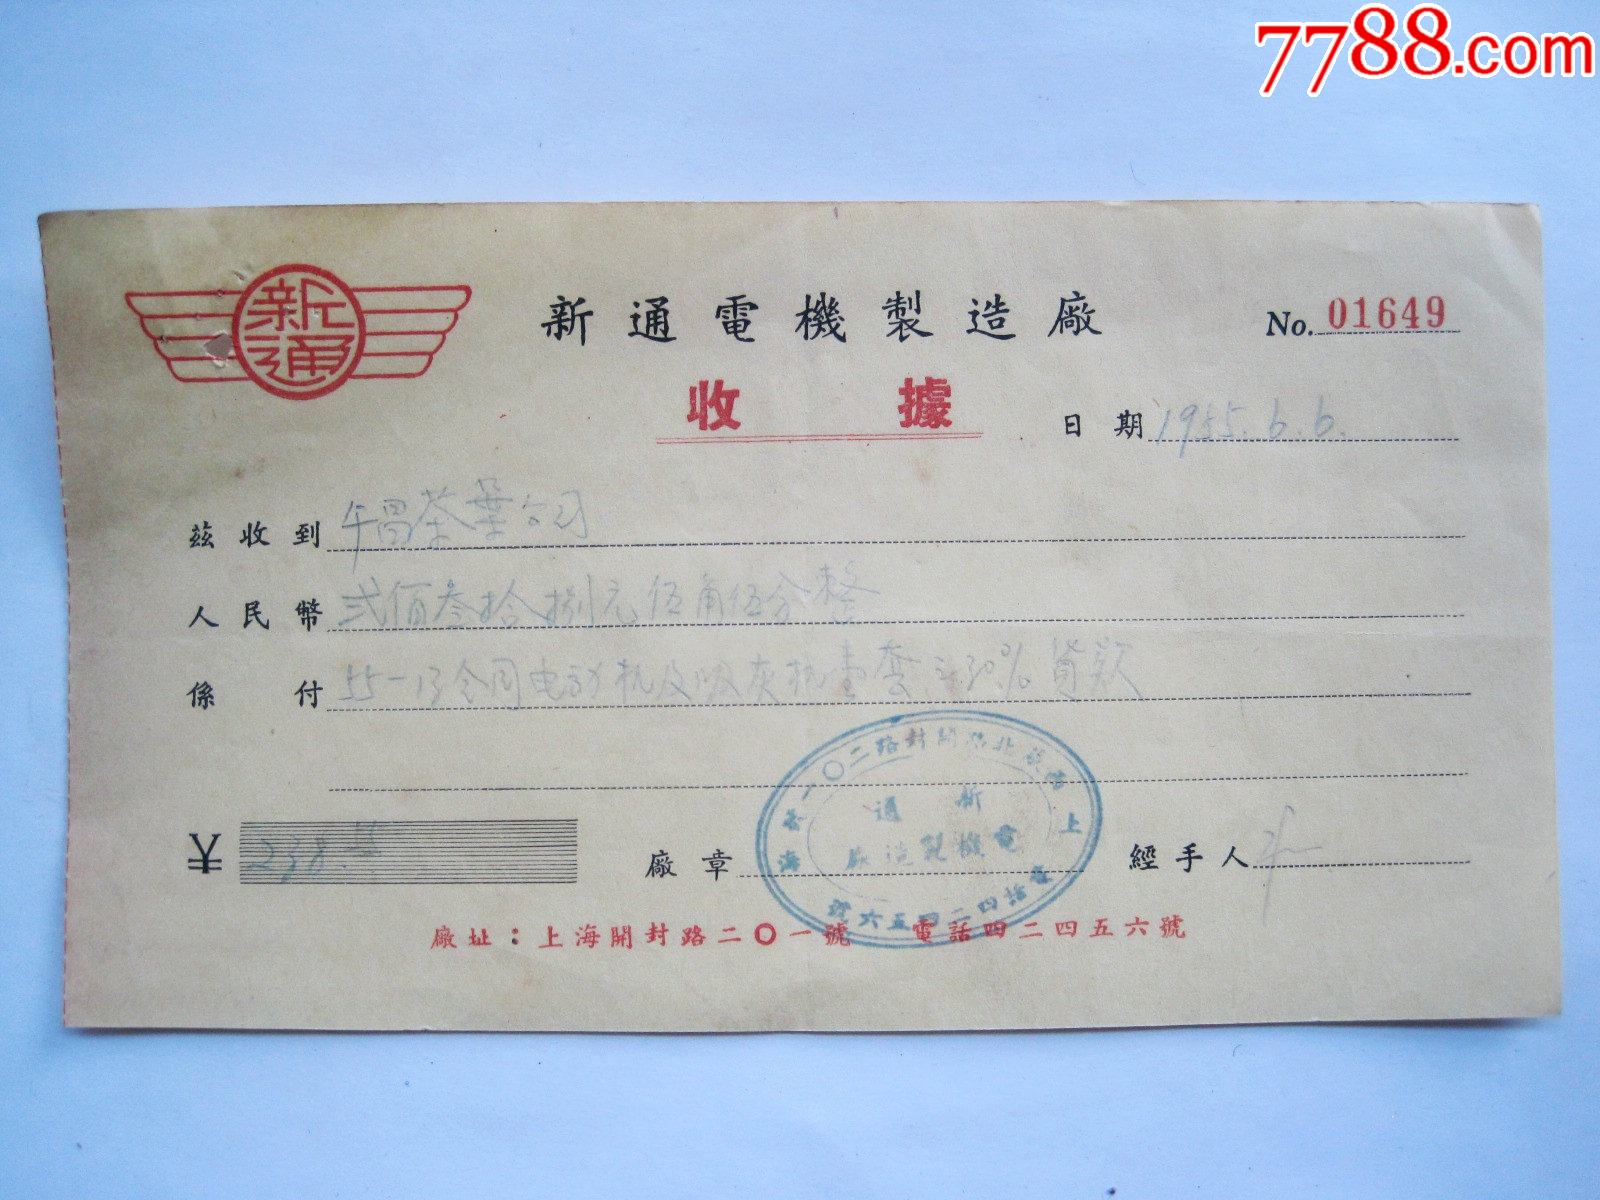 7788.com
新通
新通電機製造廠
No. 01649
收據
日期 1955.6.6.
茲收到 茶葉公司
人民幣 弍佰叁拾捌元伍角伍分整
係付 55-13合同电动机及吸灰机 套 30% 貨款
¥ 238.55
廠章
經手人
上海 北 開封路二〇一号
新通
電機製造廠
電話四二四五六號
廠址：上海開封路二〇一號 電話四二四五六號